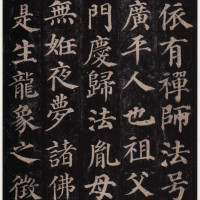 依有禪師法号
廣平人也祖父
門慶歸法胤母
無姙夜夢諸佛
是生龍象之徵